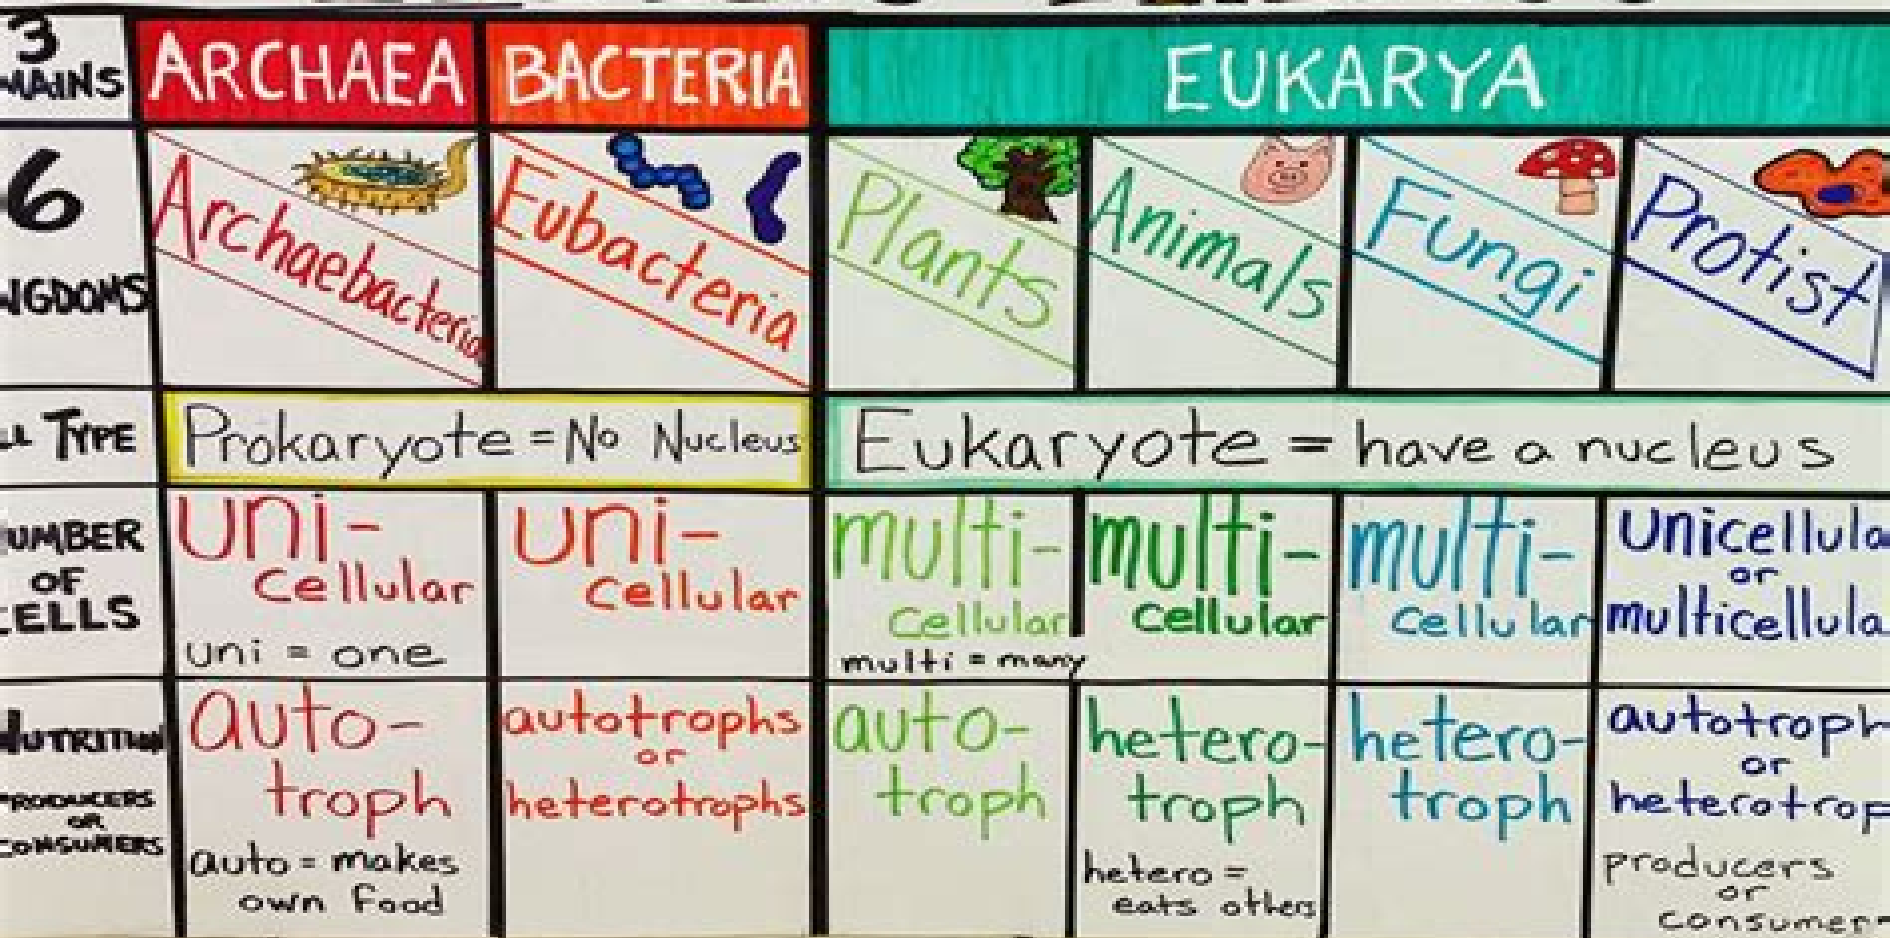 3
MAINS
ARCHAEA
BACTERIA
EUKARYA
6
NGDOMS
Archaebacteria
Eubacteria
Plants
Animals
Fungi
Protist
LL TYPE
Prokaryote = No Nucleus
Eukaryote = have a nucleus
UMBER
OF
CELLS
uni-
cellular
uni = one
uni-
cellular
multi-
cellular
multi = many
multi-
cellular
multi-
cellular
unicellula
or
multicellula
NUTRITION
PRODUCERS
OR
CONSUMERS
auto-
troph
auto = makes
own food
autotrophs
or
heterotrophs
auto-
troph
hetero-
troph
hetero =
eats others
hetero-
troph
autotroph
or
heterotrop
producers
or
consumer